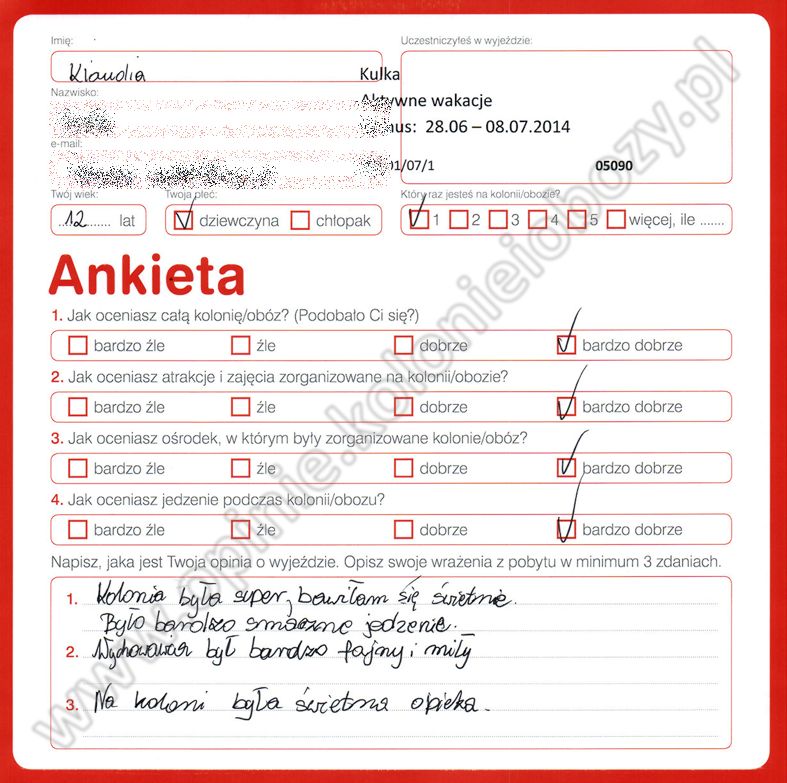 Imię:
Uczestniczyłeś w wyjeździe:
Klaudia
Kulka
Nazwisko:
Aktywne wakacje
nus: 28.06 – 08.07.2014
e-mail:
01/07/1 05090
Twój wiek: Twoja płeć: Który raz jesteś na kolonii/obozie?
12 lat dziewczyna chłopak 1 2 3 4 5 więcej, ile .......
Ankieta
1. Jak oceniasz całą kolonię/obóz? (Podobało Ci się?)
bardzo źle źle dobrze bardzo dobrze
2. Jak oceniasz atrakcje i zajęcia zorganizowane na kolonii/obozie?
bardzo źle źle dobrze bardzo dobrze
3. Jak oceniasz ośrodek, w którym były zorganizowane kolonie/obóz?
bardzo źle źle dobrze bardzo dobrze
4. Jak oceniasz jedzenie podczas kolonii/obozu?
bardzo źle źle dobrze bardzo dobrze
Napisz, jaka jest Twoja opinia o wyjeździe. Opisz swoje wrażenia z pobytu w minimum 3 zdaniach.
1. Kolonia była super, bawiłam się świetnie.
Było bardzo smaczne jedzenie.
2. Wychowawca był bardzo fajny i miły
3. Na koloni była świetna opieka.
www.opinie.kolonieiobozy.pl